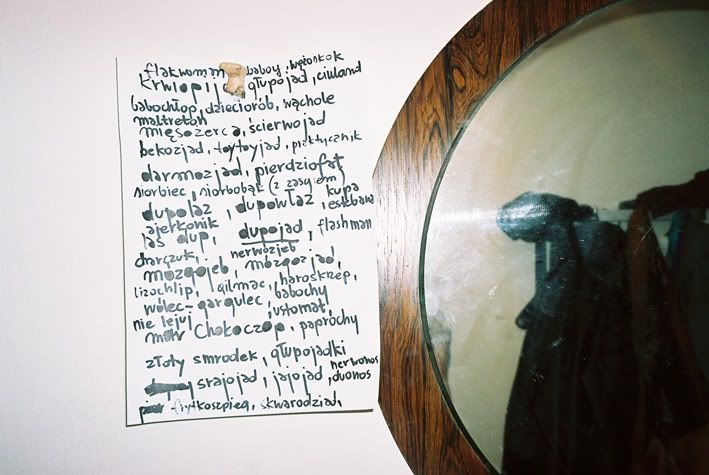 flakwoman baboy, wężonkok
krwiopij głupojad, ciuland
babochłop, dzieciorób, wąchole
maltretoń
mięsożerca, ścierwojad
bekozjad, toytoyjad, praktycznik
darmozjad, pierdziofąt
siorbiec, siorbobąk (z zasyiem)
dupołaz, dupowłaz, kupa
ajerkonik estebana
las dup, dupojad, flashman
drączuki, nerwojeb
mózgojeb, mózgojad,
lizochlip, gilmac, haroskrzep,
wólec-gargulec, babochy
nie lejuj, ustomat,
mów Chokoczop, paprochy
złoty smrodek, głupojadki
srajojad, jajojad, nerwonos
duonos
frytkoszpieg, skwarodziad,